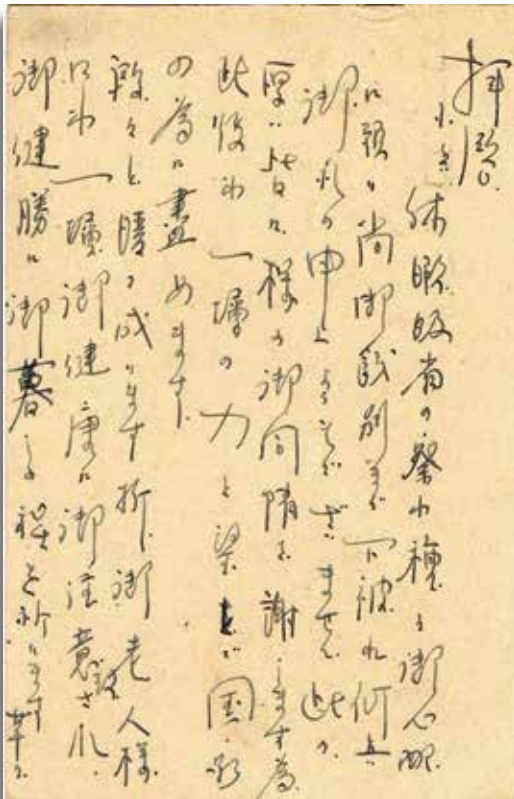 拝啓
小生 休暇帰省の祭わ種々御心配
に預り尚御餞別まで下被れ何共
御礼の申上ようもござません此の
厚い皆々様の御同情を謝します為
此後わ一層の力と望とで国家
の為に盡めます
段々と暖く成ります折御老人様
にわ一層御健康に御注意され
御健勝に御暮し程を祈ります 草々